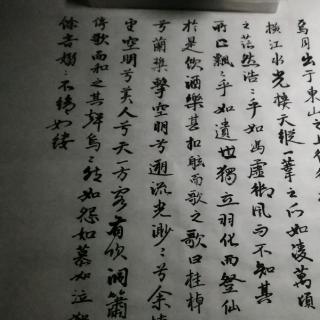 焉月出于東山之上
橫江水光接天縱一葦之所如凌萬頃
之茫然浩々乎如馮虛御風而不知其
所止飄々乎如遺世獨立羽化而登仙
於是飲酒樂甚扣舷而歌之歌曰桂棹
兮蘭槳擊空明兮遡流光渺々兮余懷
望空明兮美人兮天一方客有吹洞簫
倚歌而和之其聲烏々然如怨如慕如泣如
餘音嫋々不絕如縷